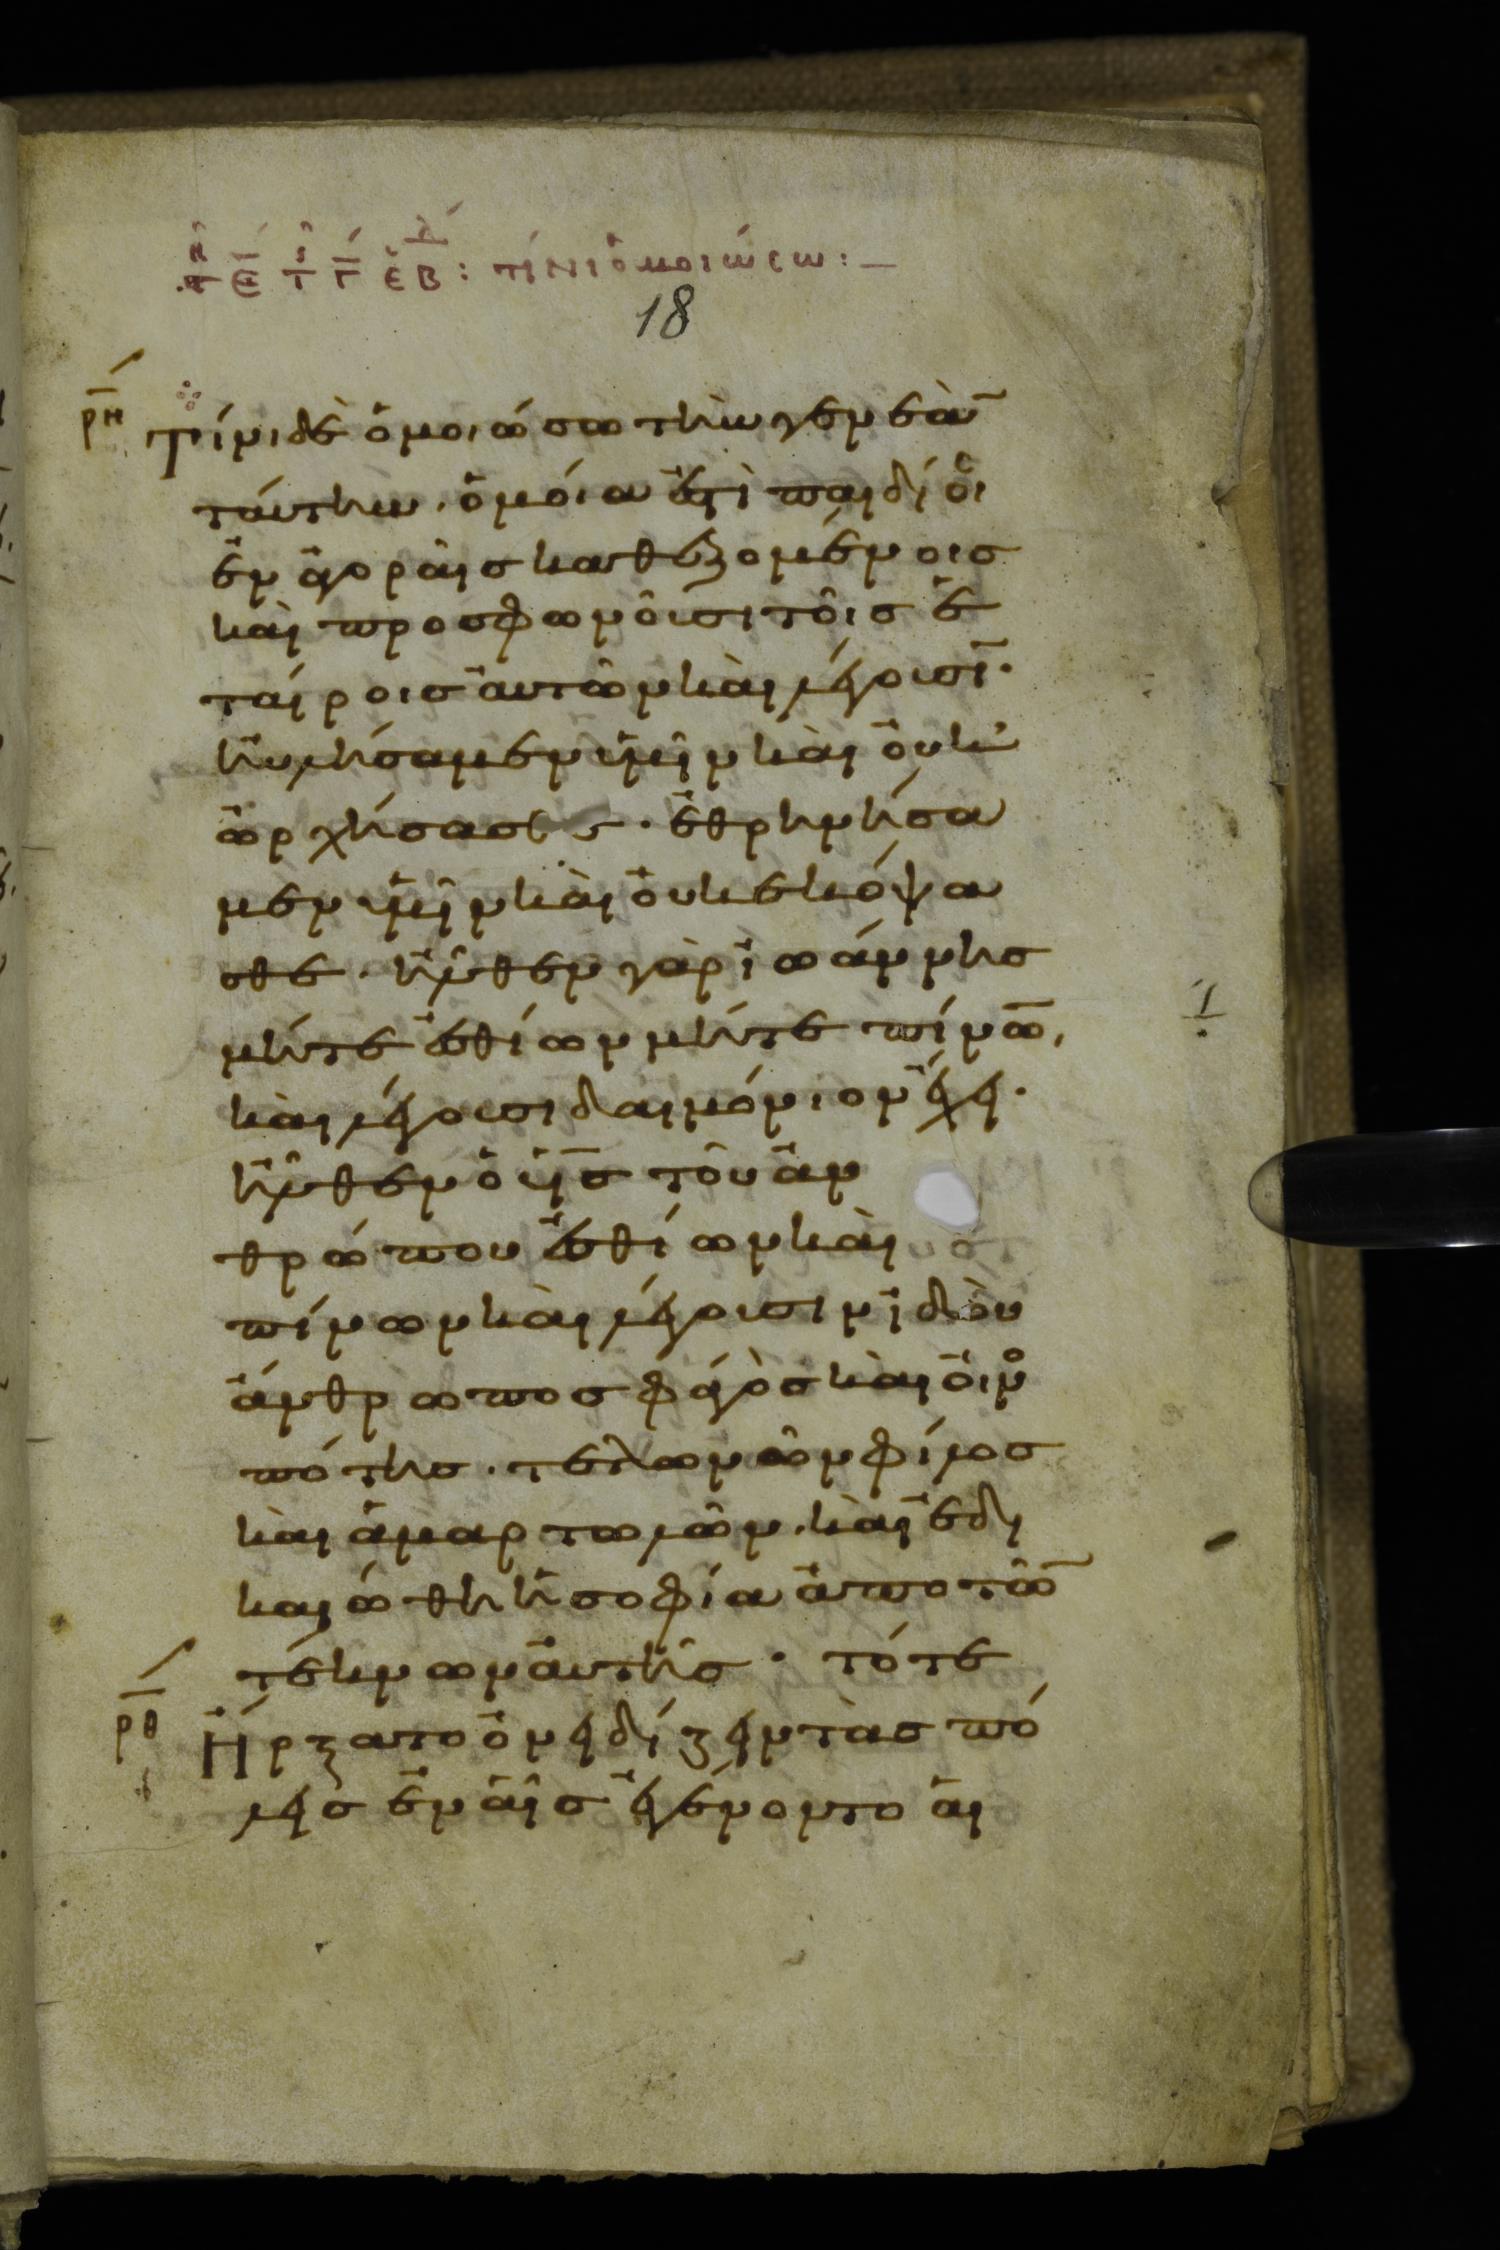 τίνι ὁμοιώσω :
18
ρη Τίνι δὲ ὁμοιώσω την γενεὰν
ταύτην. ὁμόια ἐστὶ παιδίοις
ἐν ἀγοράις καθεζομένοις
καὶ προσφωνοῦσι τοῖς ἑ
ταίροις αὐτῶν καὶ λέγουσιν·
ηὐλήσαμεν ὑμῖν καὶ οὐκ
ὠρχήσασθε· ἐθρηνήσα
μεν ὑμῖν καὶ οὐκ εκόψα
σθε· ἦλθεν γὰρ ἰωάννης
μήτε ἐσθίων μήτε πίνων,
καὶ λέγουσι δαιμόνιον ἔχει·
ἦλθεν ὁ υἱς τοῦ ἀν
θρώπου ἐσθίων καὶ
πίνων καὶ λέγουσιν ἰδοὺ
ἄνθρωπος φάγὸς καὶ οἰνο
πότης. τελωνῶν φίλος
καὶ ἁμαρτωλῶν. καὶ ἐδι
καιώθη ἡ σοφία ἀπο τῶν
τέκνων αὐτῆς· τότε
ρθ Ἤρξατο ὀνειδίζειν τὰς πό
λεις ἐν αἷς ἐγένοντο αἱ